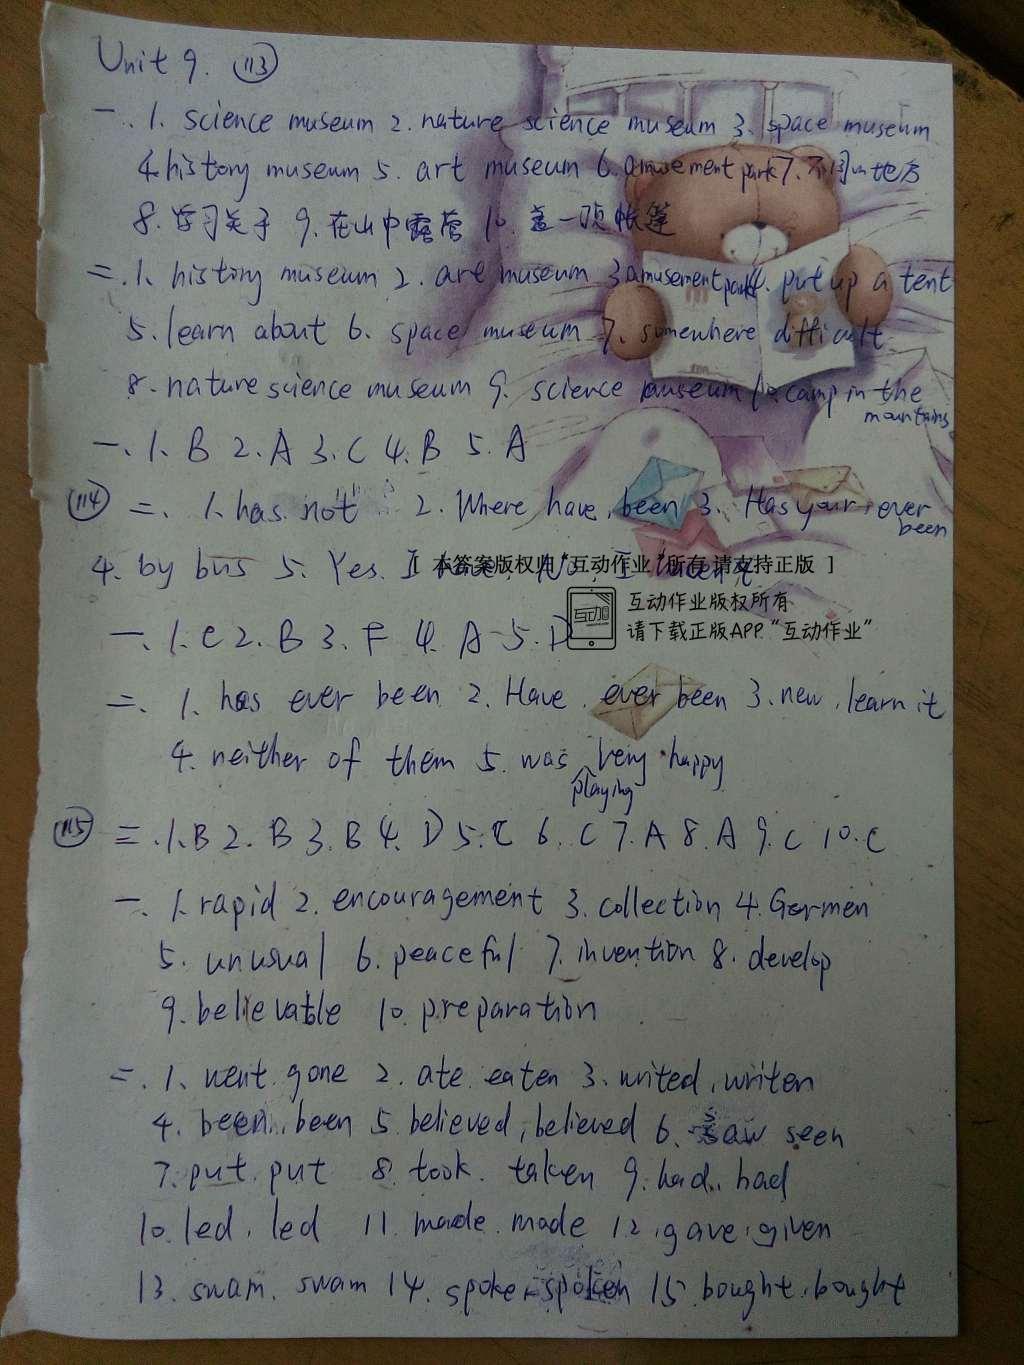 Unit 9. 113
一. 1. science museum 2. nature science museum 3. space museum
4. history museum 5. art museum 6. amusement park 7. 不同的地方
8. 学习关于 9. 在山中露营 10. 盖一顶帐篷
二. 1. history museum 2. art museum 3 amusement park 4. put up a tent
5. learn about 6. space museum 7. somewhere difficult
8. nature science museum 9. science museum 10. camp in the
mountains
一. 1. B 2. A 3. C 4. B 5. A
114 二. 1. has not 2. Where have, been 3. Has your, ever
been
4. by bus 5. Yes. I have, No, I haven't
[ 本答案版权归“互动作业”所有 请支持正版 ]
互动作业版权所有
请下载正版APP“互动作业”
一. 1. C 2. B 3. F 4. A 5. D
二. 1. has ever been 2. Have. ever been 3. new, learn it
4. neither of them 5. was very happy
playing
115 三. 1. B 2. B 3. B 4. D 5. C 6. C 7. A 8. A 9. C 10. C
一. 1. rapid 2. encouragement 3. collection 4. Germen
5. unusual 6. peaceful 7. invention 8. develop
9. believable 10. preparation
二. 1. went. gone 2. ate. eaten 3. writed, writen
4. been. been 5. believed, believed 6. saw seen
7. put. put 8. took. taken 9. had. had
10. led. led 11. made. made 12. gave. given
13. swam. swam 14. spoke. spoken 15. bought. bought